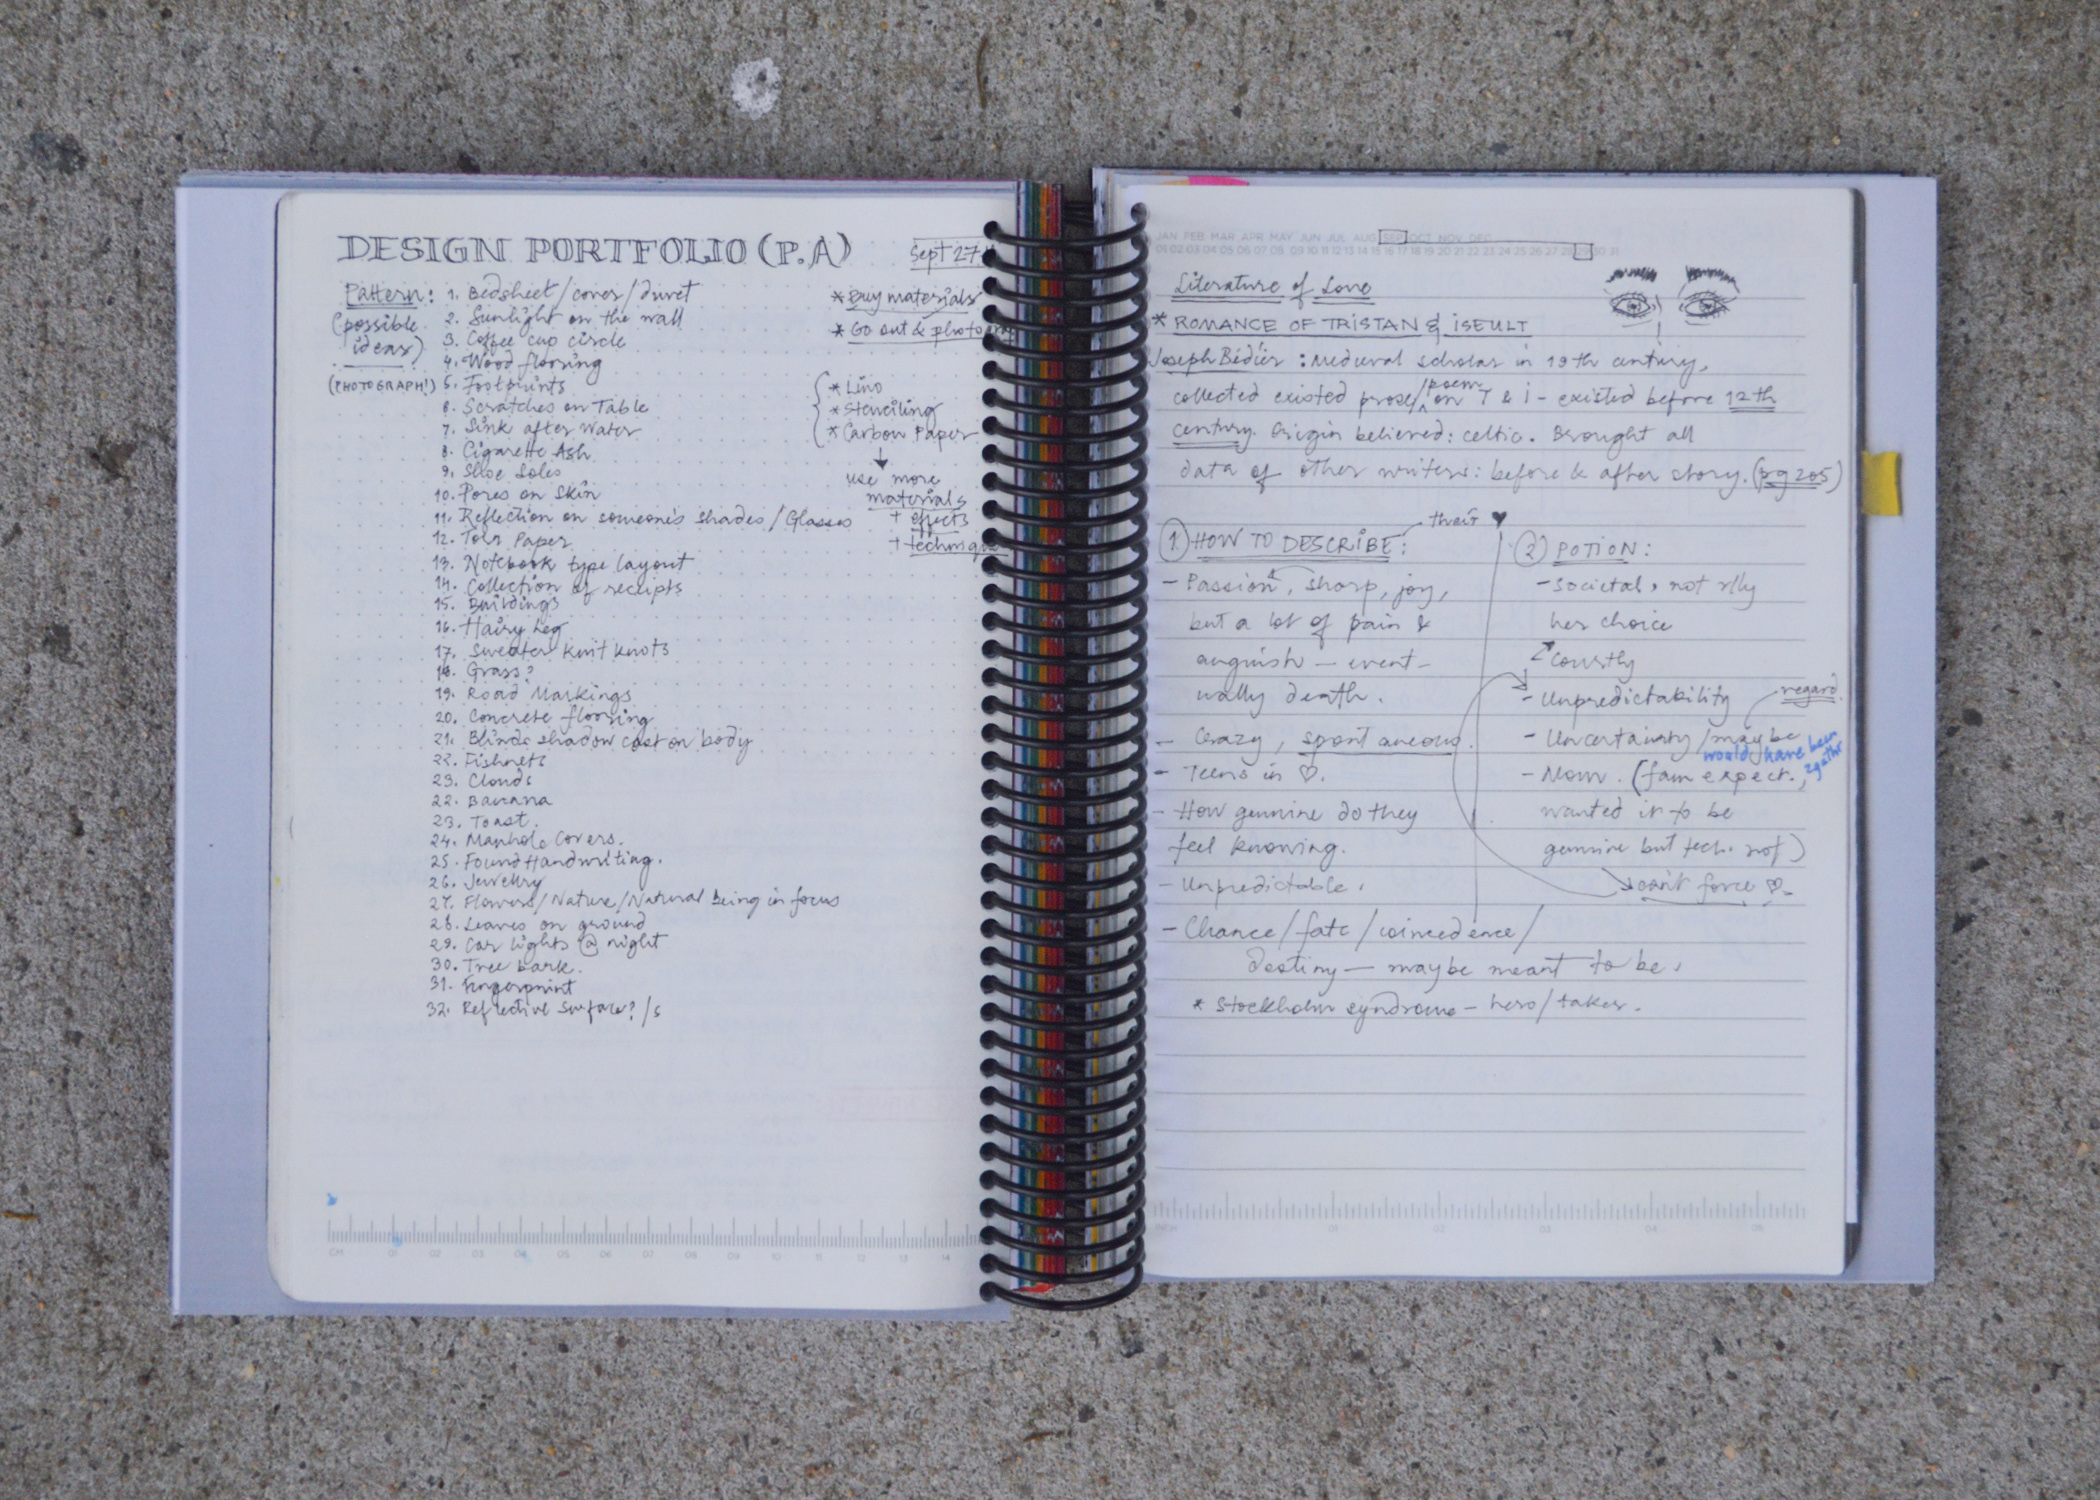 DESIGN PORTFOLIO (P.A)
Sept 27
Pattern:
(possible
ideas)
(PHOTOGRAPH!)
1. Bedsheet/cover/duvet
2. Sunlight on the wall
3. Coffee cup circle
4. Wood flooring
5. Footprints
6. Scratches on Table
7. Sink after Water
8. Cigarette Ash
9. Shoe Soles
10. Pores on Skin
11. Reflection on someone's shades/Glasses
12. Torn Paper
13. Notebook type layout
14. Collection of receipts
15. Buildings
16. Hairy Leg
17. Sweater Knit Knots
18. Grass?
19. Road Markings
20. Concrete flooring
21. Blinds shadow cast on body
22. Fishnets
23. Clouds
22. Banana
23. Toast.
24. Manhole Covers.
25. Found Handwriting.
26. Jewellry
27. Flowers/Nature/Natural Being in focus
28. Leaves on ground
29. Car Lights @ night
30. Tree bark.
31. Fingerprint
32. Reflective Surface?/s
* Buy materials
* Go out & photograp
* Lino
* Stenciling
* Carbon Paper
use more
materials
+ effects
+ techniqu
CM 01 02 03 04 05 06 07 08 09 10 11 12 13 14
JAN FEB MAR APR MAY JUN JUL AUG SEP OCT NOV DEC
01 02 03 04 05 06 07 08 09 10 11 12 13 14 15 16 17 18 19 20 21 22 23 24 25 26 27 28 29 30 31
Literature of Love
* ROMANCE OF TRISTAN & ISEULT
Joseph Bédier: Medieval scholar in 19th century,
collected existed prose/poem on T & I - existed before 12th
century. Origin believed: celtic. Brought all
data of other writers: before & after story. (pg 205)
their ♥
1 HOW TO DESCRIBE:
- Passion, sharp, joy,
but a lot of pain &
anguish - event-
ually death.
- Crazy, spontaneous.
- Teens in ♡.
- How genuine do they
feel knowing.
- Unpredictable.
- Chance/fate/coincedence/
destiny - maybe meant to be.
* Stockholm syndrome - hero/taker.
2 POTION:
- Societal, not rlly
her choice
Courtly
- Unpredictability
regard
- Uncertainty/maybe
would have been
- Mom. (fam expect.,
wanted it to be
genuine but tech. not)
can't force ♡.
INCH 01 02 03 04 05